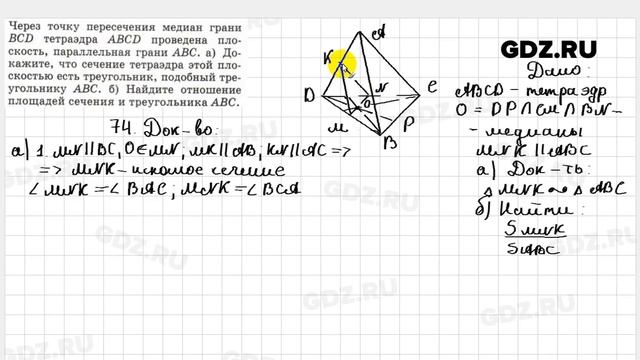 Через точку пересечения медиан грани
BCD тетраэдра ABCD проведена пло-
скость, параллельная грани ABC. а) До-
кажите, что сечение тетраэдра этой пло-
скостью есть треугольник, подобный тре-
угольнику ABC. б) Найдите отношение
площадей сечения и треугольника ABC.
74. Док-во:
а) 1. MN∥BC, O∈MN; MK∥AB, KN∥AC ⇒
⇒ MNK - искомое сечение
∠MNK = ∠BAC; ∠MNK = ∠BCA
A
K
D
N
C
O
M
P
B
GDZ.RU
Дано:
ABCD - тетраэдр
O = DP∩CM∩BN -
- медианы
MNK ∥ ABC
а) Док-ть:
△MNK ∾ △ABC
б) Найти:
SMNK
SABC
GDZ.RU
GDZ.RU
GDZ.RU
GDZ.RU